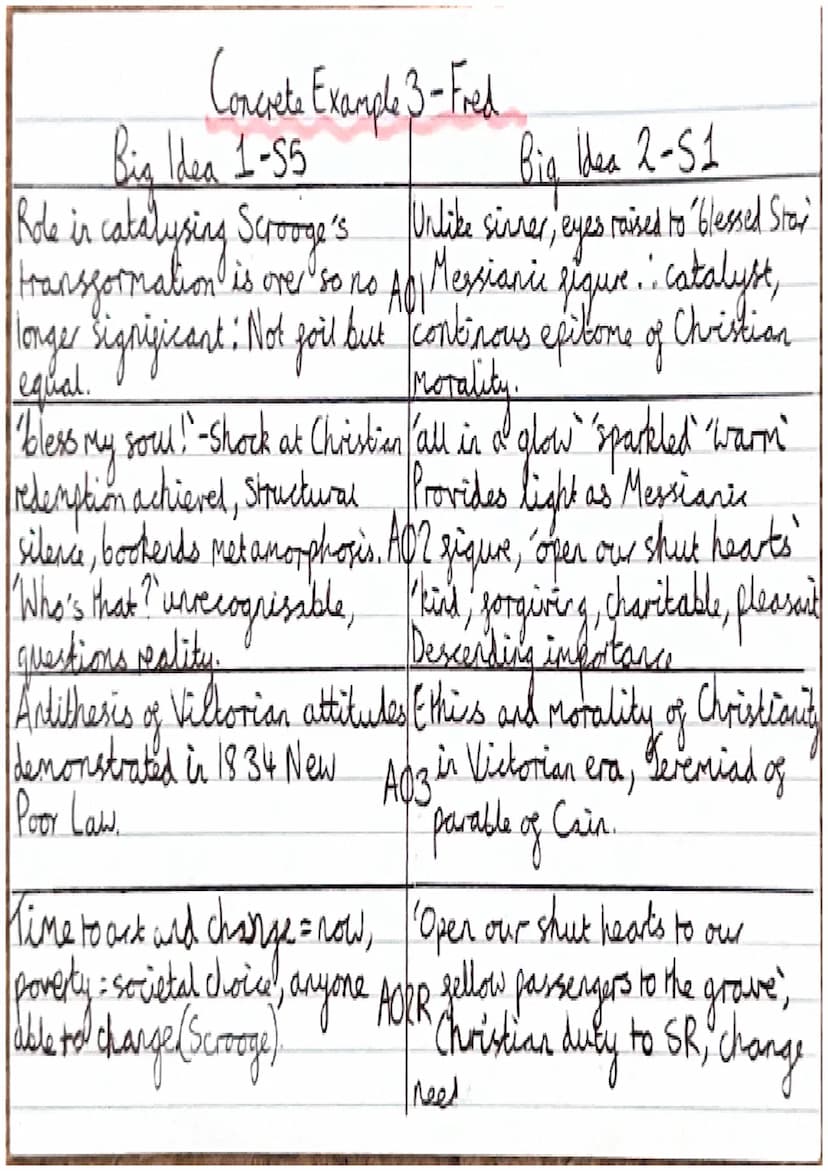 Concrete Example 3-Fred
Big Idea 1-S5
Role in catalysing Scrooge's
transformation is over so no
longer significant∴ Not foil but
equal.
'bless my soul!'-Shock at Christian
redemption achieved, Structural
silence, bookends metamorphosis.
'Who's that?' unrecognisable,
questions reality.
Antithesis of Victorian attitudes
demonstrated in 1834 New
Poor Law.
Time to act and change=now,
poverty=societal choice, anyone
able to change(Scrooge).
AO1
AO2
AO3
AO2R
Big Idea 2-S1
Unlike sinner, eyes raised to 'blessed Star'
Messianic figure.∴ catalyst,
continous epitome of Christian
Morality.
'all in a glow' 'sparkled' 'warm'
Provides light as Messianic
figure, 'open our shut hearts'
'kind, forgiving, charitable, pleasant
Descending importance
Ethics and Morality of Christianity
in Victorian era, Jeremiad of
parable of Cain.
'Open our shut hearts to our
fellow passengers to the grave',
Christian duty to SR, change
need